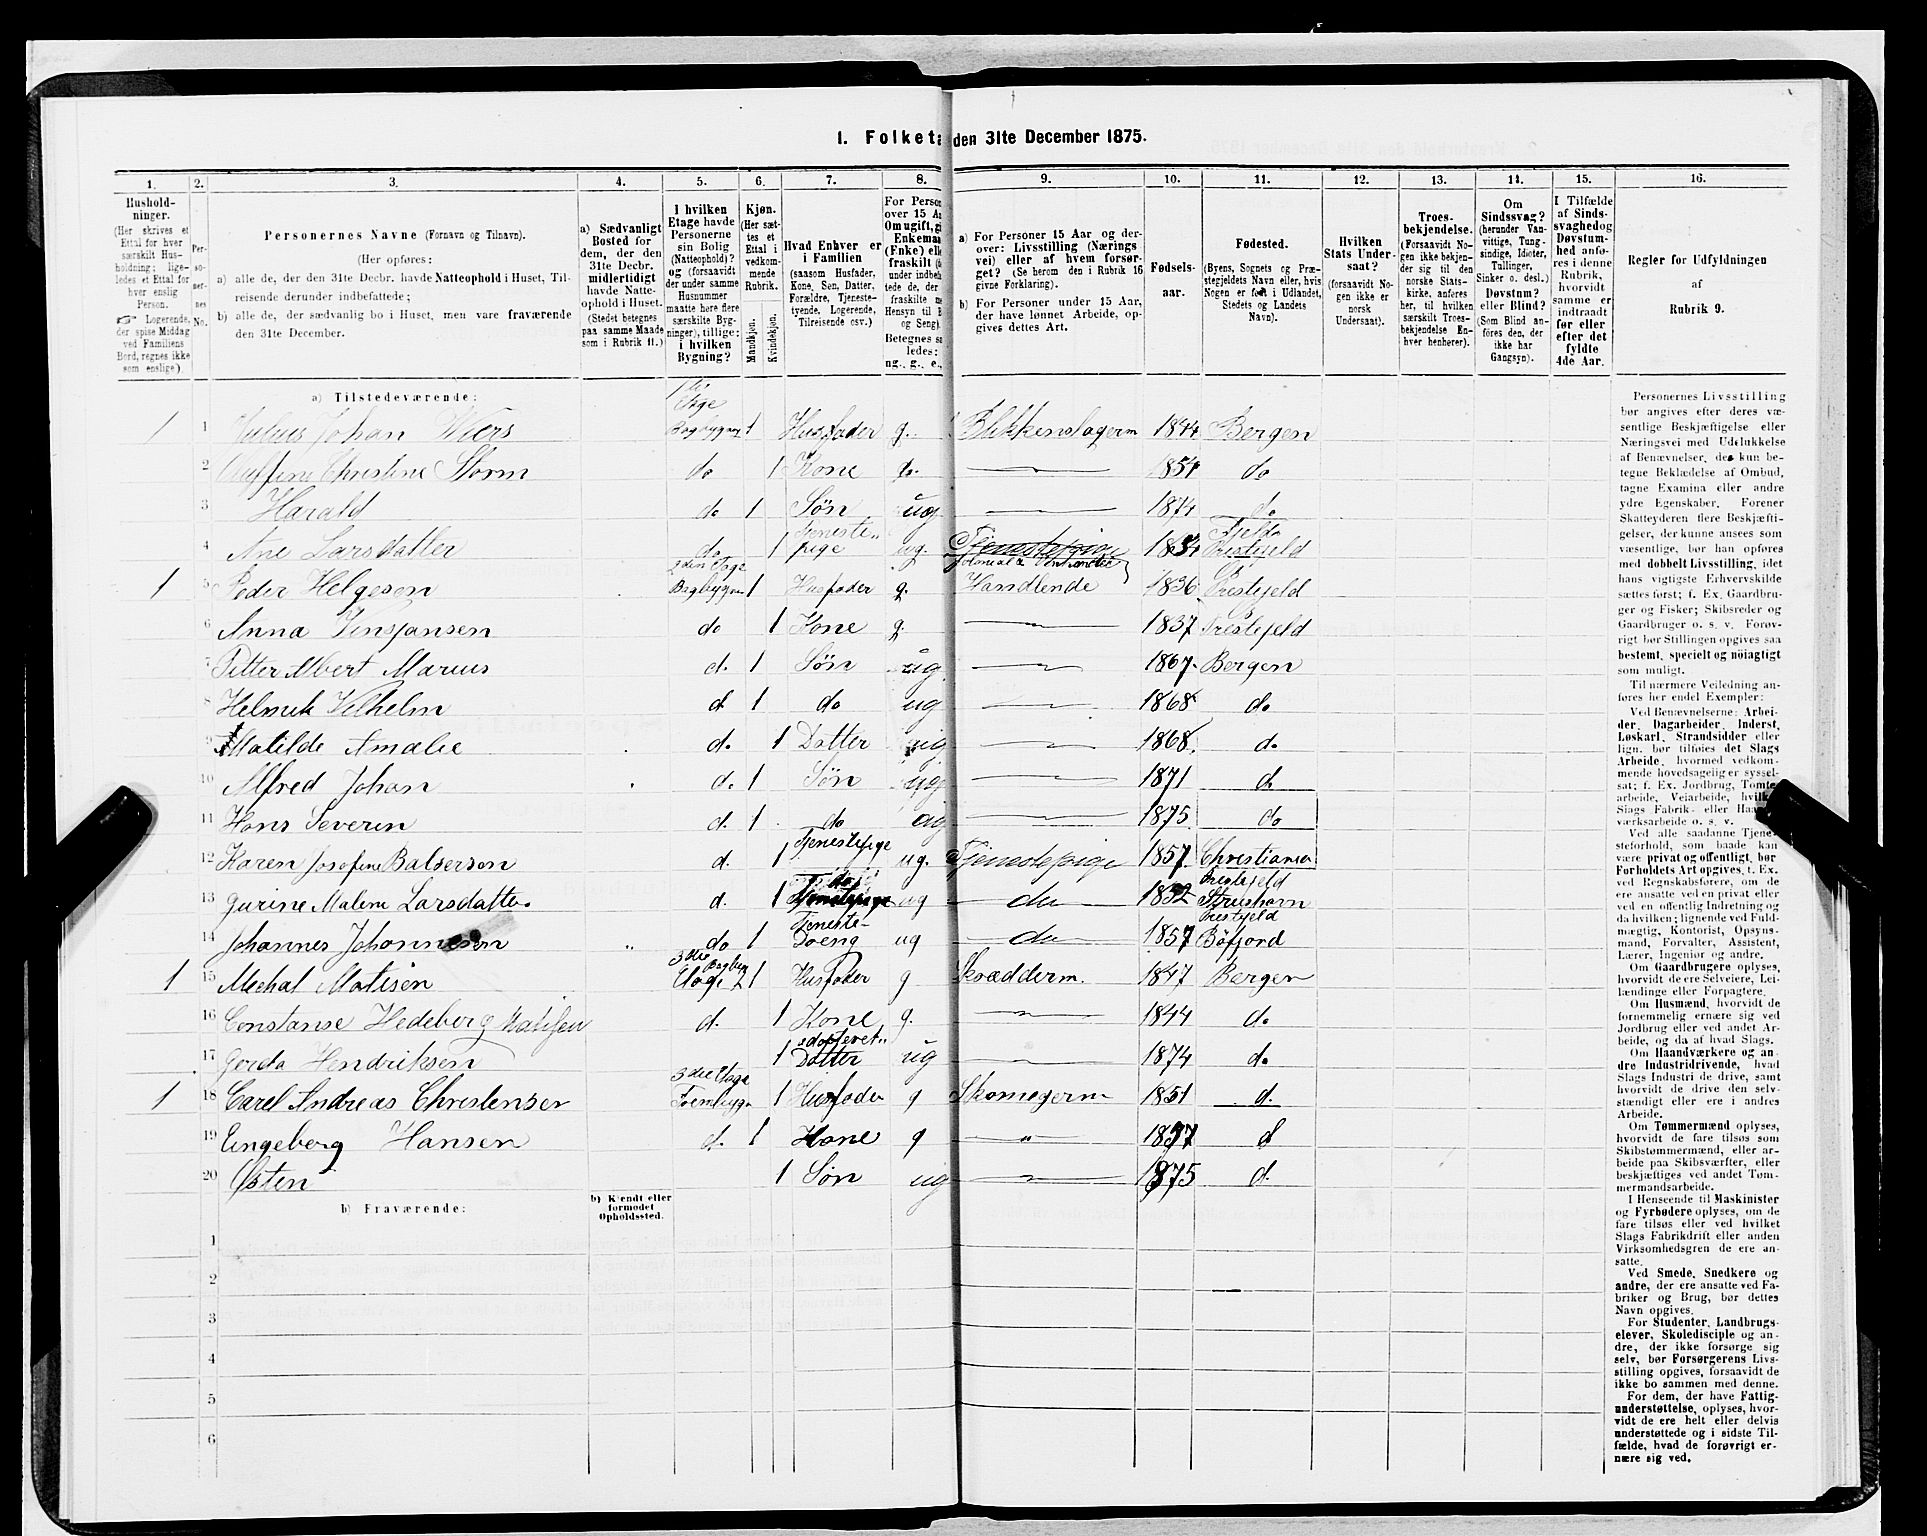 1. Folketæ den 31te December 1875.
1. 2. 3. 4. 5. 6. 7. 8. 9. 10. 11. 12. 13. 14. 15. 16.
Hushold-
ninger.
(Her skrives et
Ettal for hver
særskilt Hus-
holdning; lige-
ledes et Ettal for
hver enslig
Person.
☞ Logerende,
der spise Middag
ved Familiens
Bord, regnes ikke
som enslige).
Per-
so-
ner-
nes
No.
Personernes Navne (Fornavn og Tilnavn).
(Her opføres:
a) alle de, der den 31te Decbr. havde Natteophold i Huset, Til-
reisende derunder indbefattede;
b) alle de, der sædvanlig bo i Huset, men vare fraværende
den 31te December.
a) Sædvanligt
Bosted for
dem, der den
31te Decbr.
midlertidigt
havde Natte-
ophold i Huset.
(Stedet betegnes
paa samme Maade
som i Rubrik 11.)
I hvilken
Etage havde
Personerne
sin Bolig
(Natteophold)?
og (forsaavidt
der under samme
Husnummer
maatte høre flere
særskilte Byg-
ninger), tillige:
i hvilken
Bygning?
Kjøn.
(Her sæt-
tes et
Ettal i
vedkom-
mende
Rubrik.
Mandkjøn.
Kvindekjøn.
Hvad Enhver er
i Familien
(saasom Husfader,
Kone, Søn, Datter,
Forældre, Tjeneste-
tyende, Logerende,
Tilreisende osv.)
For Person
over 15 Aa
Om ugift, g
Enkema
(Enke) elle
fraskilt
under indbe
lede, de
fraskilte
Hensyn til
og Seng).
Betegnes s
ledes:
ug., g., e.,
a) For Personer 15 Aar og der-
over: Livsstilling (Nærings
vei) eller af hvem forsør-
get? (Se herom den i Rubrik 16
givne Forklaring).
b) For Personer under 15 Aar,
der have lønnet Arbeide, op-
gives dettes Art.
Fødsels-
aar.
Fødested.
(Byens, Sognets og Præ-
stegjeldets Navn eller, hvis
Nogen er født i Udlandet,
Stedets og Landets
Navn).
Hvilken
Stats Under-
saat?
(forsaavidt No-
gen ikke er
norsk
Undersaat).
Troes-
bekjendelse.
(Forsaavidt No-
gen ikke bekjen-
der sig til den
norske Stats-
kirke, anføres
her, til hvilken
særskilt Troes-
bekjendelse En-
hver henhører).
Om
Sindssvag?
(herunder Van-
vittige, Tung-
sindige, Idioter,
Tullinger,
Sinker o. desl.)
Døvstum?
eller Blind?
(Som Blind an-
føres den, der
ikke har
Gangsyn).
I Tilfælde
af Sinds-
svaghed og
Døvstum-
hed anfø-
res i denne
Rubrik,
hvorvidt
samme er
indtraadt
før eller
efter det
fyldte
4de Aar.
Regler for Udfyldningen
af
Rubrik 9.
a) Tilstedeværende:
1 1 Julius Johan Wiers 1ste Etage Bagbygn 1 Husfader g. Blikkenslagerm 1844 Bergen
2 Christine Storm do 1 Kone do. 1854 do
3 Harald do 1 Søn ug 1874 do
4 Ane Larsdatter do 1 Tjeneste- pige ug. Tjenestepige 1854 Prestejeld
1 5 Peder Helgesen 2den Etage Bagbygn 1 Husfader g. Handlende 1836 Prestejeld
6 Anna do 1 Kone g. 1837 Prestejeld
7 Petter Albert Marius d. 1 Søn ug 1867 Bergen
8 Helmik Vilhelm d 1 do ug 1868 do
9 Matilde Amalie d. 1 Datter ug 1868 d.
10 Alfred Johan d. 1 Søn ug 1871 d.
11 Hans Severin d. 1 do ug 1875 do
12 Karen Josefine Balserson d. 1 Tjenestepige ug. Tjenestepige 1857 Christiania
13 Gurine Malene Larsdatter d. 1 do ug do 1832 Prestejeld
14 Johannes Johannesen do 1 Tjeneste- Dreng ug do 1857 Prestejeld Böfjord
1 15 Mechal Matisen 3die Etage 1 Husfader g Skrædderm. 1847 Bergen
16 Constanse Hedeberg Matisen d. 1 Kone g. 1844 d.
17 Gerda Hendriksen 1 adopteret Datter ug 1874 d.
1 18 Carel Andreas Christensen 3die Etage Forebygn 1 Husfader g Skomagerm 1851 d.
19 Engeberg Hansen d. 1 Kone g " 1857 d
20 Østen 1 Søn ug 1875 d.
b) Fraværende:
b) Kjendt eller
formodet
Opholdssted.
1
2
3
4
5
6
Personernes Livsstilling
bør angives efter deres væ-
sentlige Beskjæftigelse eller
Næringsvei med Udelukkelse
af Benævnelser, der kun be-
tegne Beklædelse af Ombud,
tagne Examina eller andre
ydre Egenskaber. Forener
Skatteyderen flere Beskjæfti-
gelser, der kunne ansees som
væsentlige, bør han opføres
med dobbelt Livsstilling, idet
hans vigtigste Erhvervskilde
sættes først; f. Ex. Gaardbru-
ger og Fisker; Skibsreder og
Gaardbruger o. s. v. Forøv-
rigt bør Stillingen opgives saa
bestemt, specielt og nøiagtigt
som muligt.
Til nærmere Veiledning an-
føres her endel Exempler:
Ved Benævnelserne: Arbei-
der, Dagarbeider, Inderst,
Løskarl, Strandsidder eller
lign. bør tilføies det Slags
Arbeide, hvormed vedkom-
mende hovedsagelig er syssel-
sat; f. Ex. Jordbrug, Tomte-
arbeide, Veiarbeide, hvilket
Slags Fabrik- eller Haand-
værksarbeide o. s. v.
Ved alle saadanne Tjene-
steforhold, som baade kan
være privat og offentligt, bør
Forholdets Art opgives, t. Ex.
ved Regnskabsførere, om de
ere ansatte ved en privat eller
ved en offentlig Indretning og
da hvilken; lignende ved Fuld-
mægtig, Kontorist, Opsyns-
mand, Forvalter, Assistent,
Lærer, Ingeniør og andre.
Om Gaardbrugere oplyses,
hvorvidt de ere Selveiere, Lei-
lændinge eller Forpagtere.
Om Husmænd, hvorvidt de
fornemmelig ernære sig ved
Jordbrug eller ved andet Ar-
beide, og da af hvad Slags.
Om Haandværkere og an-
dre Industridrivende, hvad
Slags Industri de drive, samt
hvorvidt de drive den selv-
stændigt eller ere i andres
Arbeide.
Om Tømmermænd oplyses,
hvorvidt de fare tilsøs som
Skibstømmermænd, eller ar-
beide paa Skibsværfter, eller
beskjæftiges ved andet Tøm-
mermandsarbeide.
I Henseende til Maskinister
og Fyrbødere oplyses, om de
fare tilsøs eller ved hvilket
Slags Fabrikdrift eller anden
Virksomhedsgren de ere an-
satte.
Ved Smede, Snedkere og
andre, der ere ansatte ved Fa-
briker og Brug, bør dettes
Navn opgives.
For Studenter, Landbrugs-
elever, Skoledisciple og an-
dre, der ikke forsørge sig
selv, bør Forsørgerens Livs-
stilling opgives, forsaavidt de
ikke bo sammen med denne.
For dem, der have Fattig-
understøttelse, oplyses, hvor-
vidt de ere helt eller delvis
understøttede og i sidste Til-
fælde, hvad de forøvrigt er-
nære sig ved.